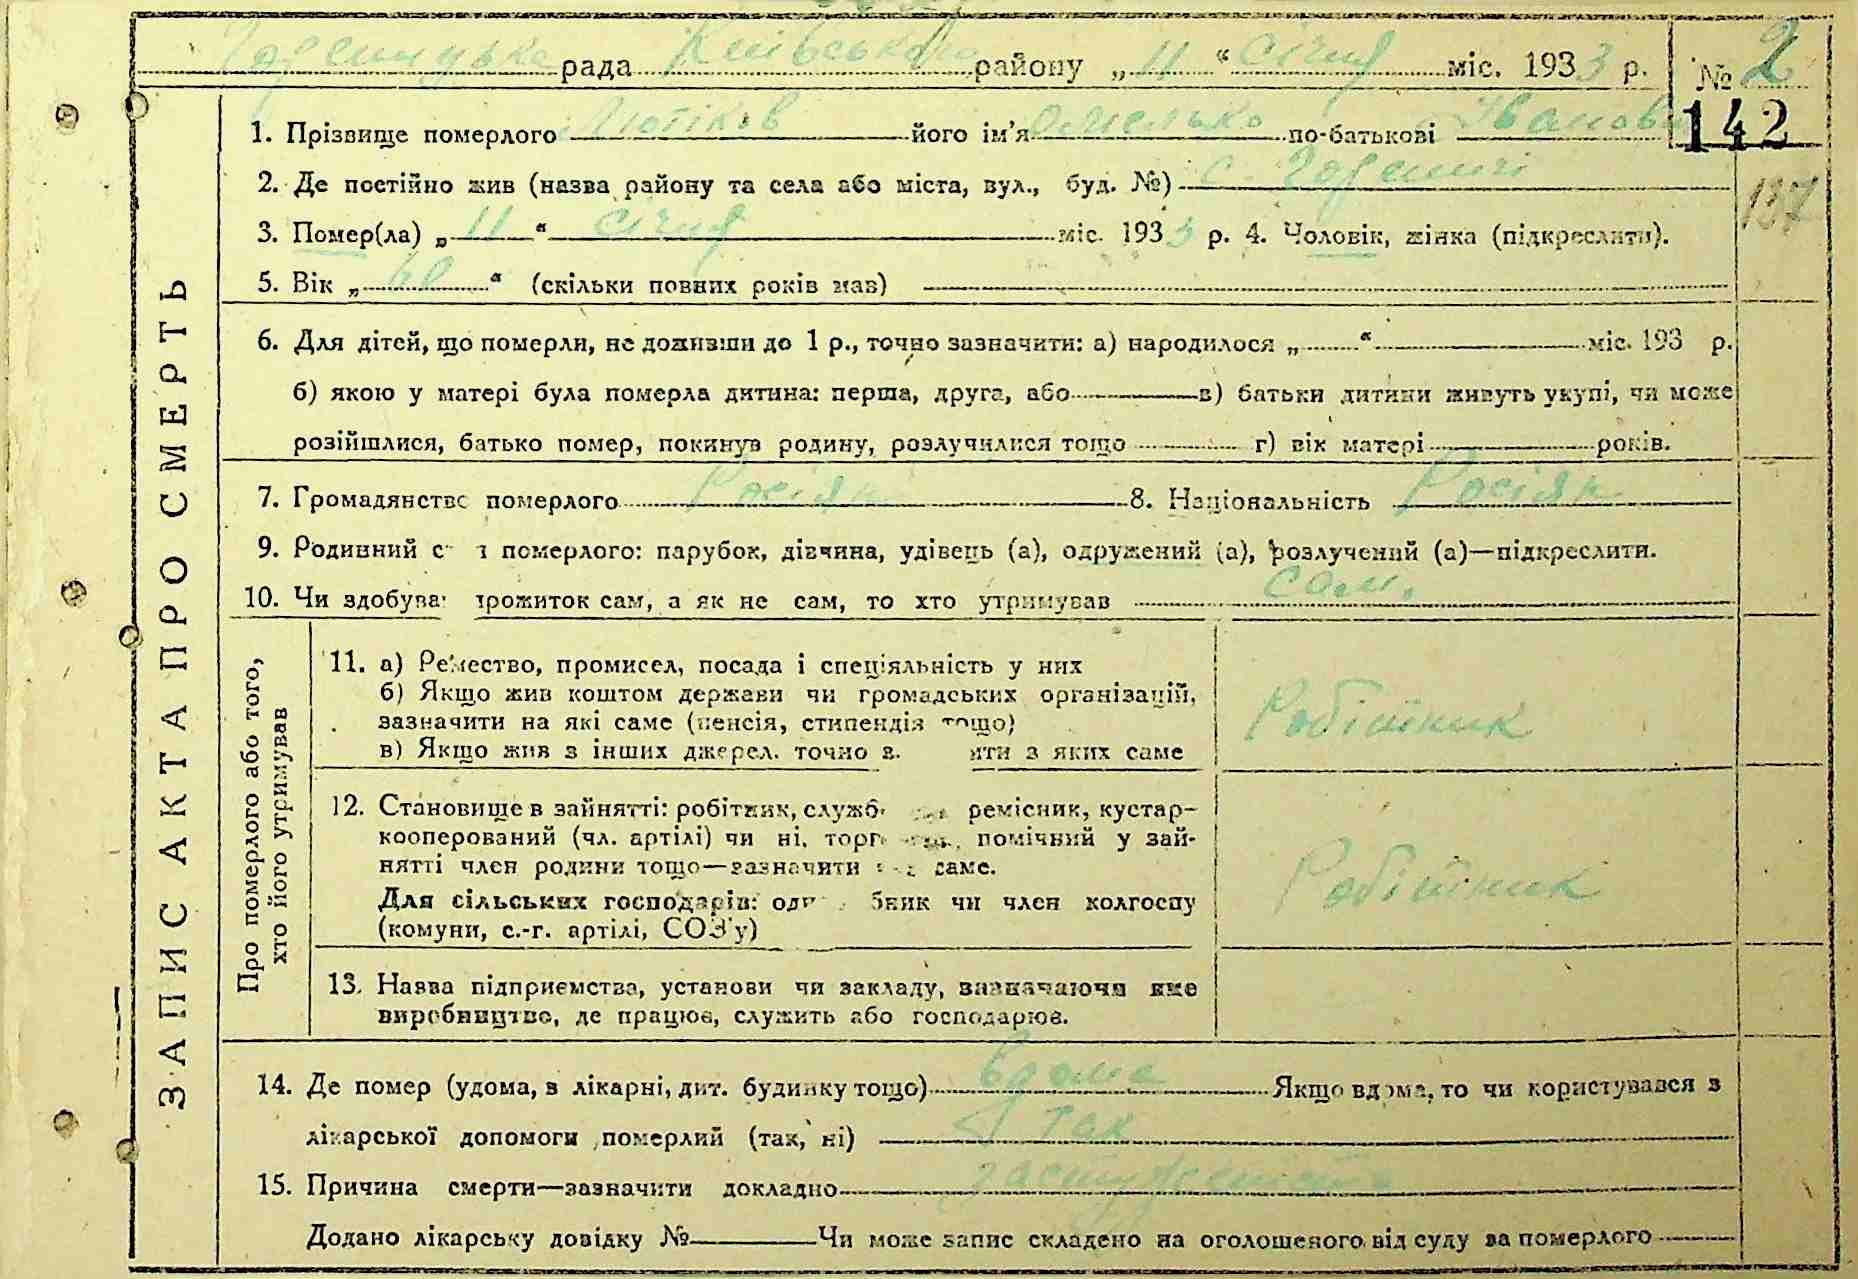 Гореницька рада Київського району „ 11 “ січня міс. 1933 р. № 2
1. Прізвище померлого Лютіков його ім'я Омелько по-батькові Іванов 142
2. Де постійно жив (назва району та села або міста, вул., буд. №) с. Гореничі
137
3. Помер(ла) „ 11 “ січня міс. 1933 р. 4. Чоловік, жінка (підкреслити).
5. Вік „ 60 “ (скільки повних років мав)
6. Для дітей, що померли, не доживши до 1 р., точно зазначити: а) народилося „ “ міс. 193 р.
б) якою у матері була померла дитина: перша, друга, або в) батьки дитини живуть укупі, чи може
розійшлися, батько помер, покинув родину, розлучилися тощо г) вік матері років.
7. Громадянство померлого Росіян 8. Національність Росіян
9. Родинний с т н померлого: парубок, дівчина, удівець (а), одружений (а), розлучений (а)—підкреслити.
10. Чи здобува прожиток сам, а як не сам, то хто утримував сам.
ЗАПИС АКТА ПРО СМЕРТЬ
Про померлого або того,
хто його утримував
11. а) Ремество, промисел, посада і спеціяльність у них
б) Якщо жив коштом держави чи громадських організацій,
зазначити на які саме (пенсія, стипендія тощо)
в) Якщо жив з інших джерел, точно з ити з яких саме
Робітник
12. Становище в зайнятті: робітник, служб ремісник, кустар-
кооперований (чл. артілі) чи ні, торг помічний у зай-
нятті член родини тощо—зазначити саме.
Для сільських господарів: оди бник чи член колгоспу
(комуни, с.-г. артілі, СОЗ'у)
Робітник
13. Назва підприємства, установи чи закладу, зазначаючи яке
виробництво, де працює, служить або господарює.
14. Де помер (удома, в лікарні, дит. будинку тощо) вдома Якщо вдома, то чи користувався з
лікарської допомоги померлий (так, ні) так
15. Причина смерти—зазначити докладно
Додано лікарську довідку № Чи може запис складено на оголошеного від суду за померлого